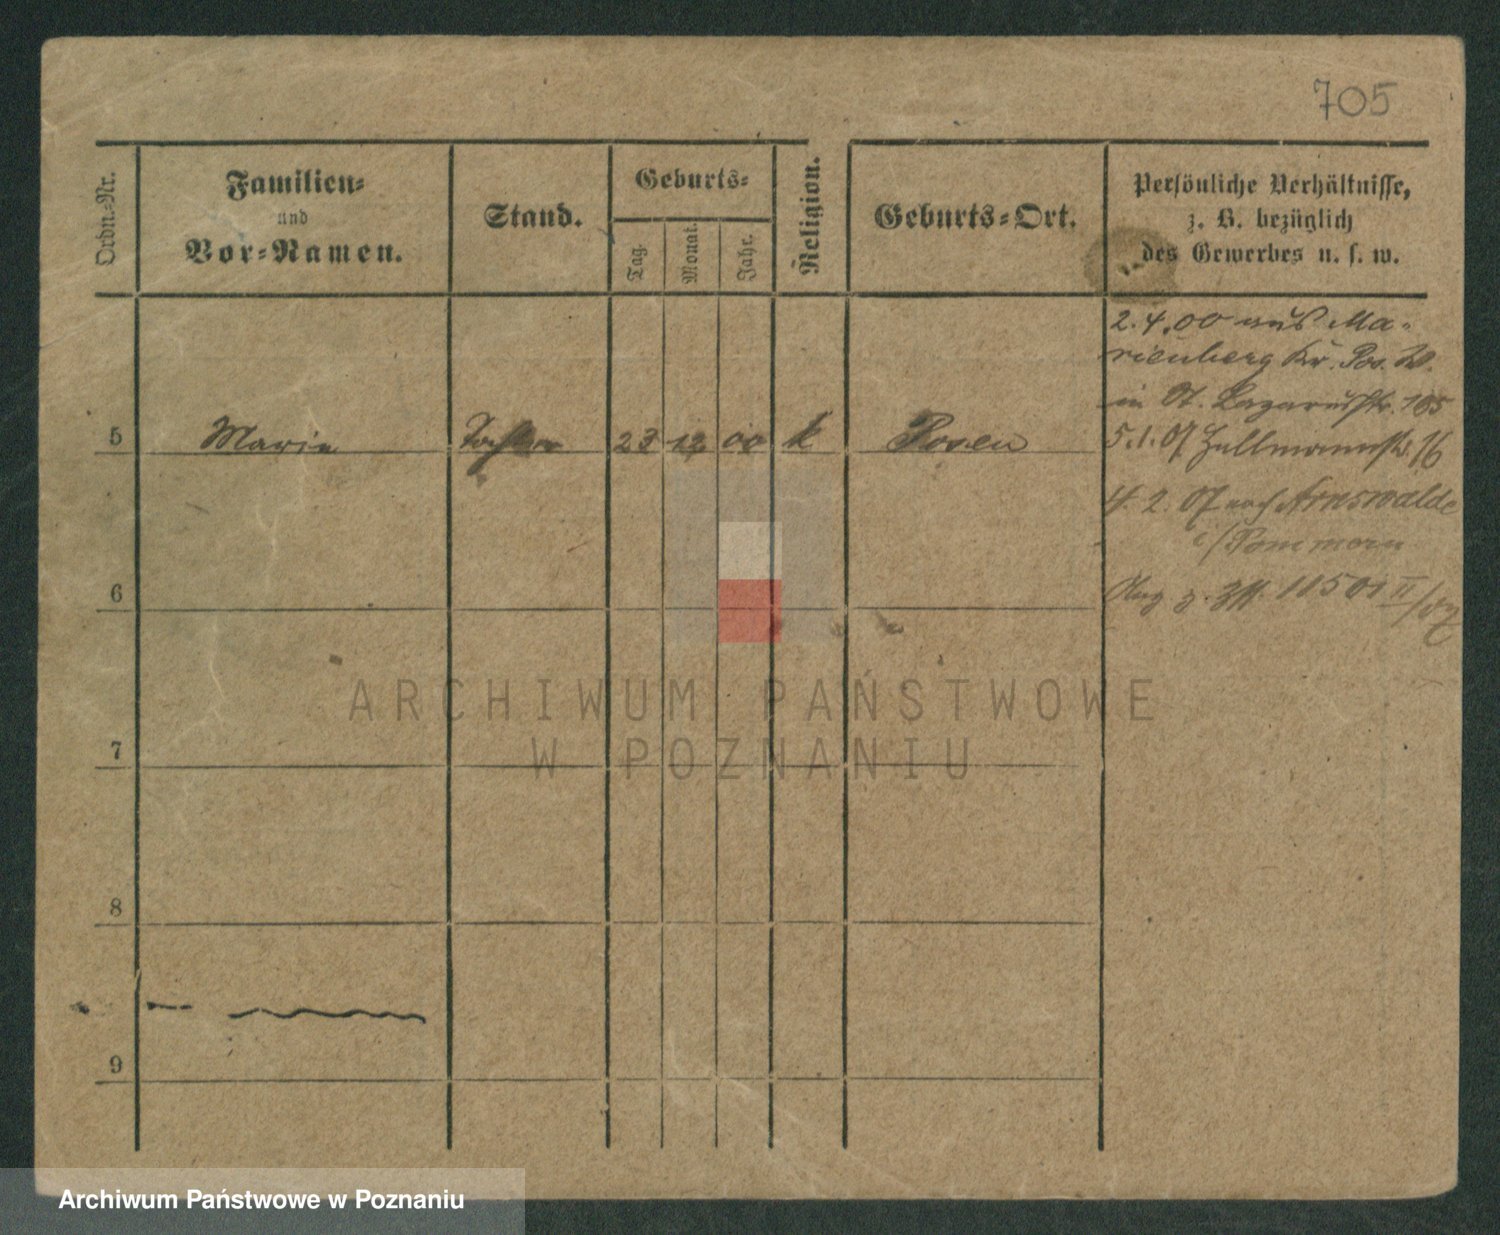 705
Ordn.-Nr.
Familien-
und
Vor-Namen.
Stand.
Geburts-
Tag.
Monat.
Jahr.
Religion.
Geburts-Ort.
Persönliche Verhältnisse,
z. B. bezüglich
des Gewerbes u. s. w.
2.4.00 aus Ma-
rienberg Kr. Pos. W.
in St. Lazarusstr. 105
5 Marie Tochter 23 12 00 k Posen
5.1.07 16
4. 2. 07 nach Arnswalde
i/Pommern
6
11501 II/07
ARCHIWUM PAŃSTWOWE
W POZNANIU
7
8
9
Archiwum Państwowe w Poznaniu